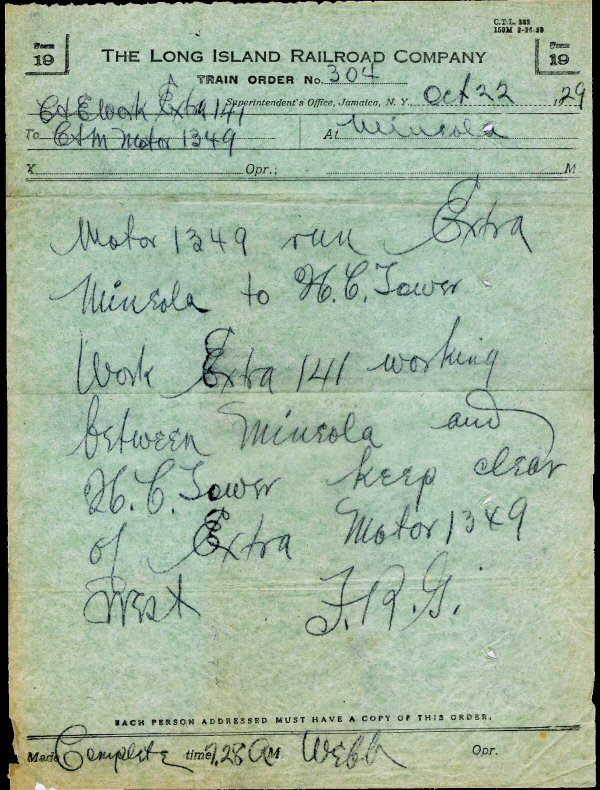 C.T.L. 263
150M 2-26-29
Form 19
Form 19
THE LONG ISLAND RAILROAD COMPANY
TRAIN ORDER No. 304
Superintendent's Office, Jamaica, N. Y. Oct 22, 1929
C&E Work Extra 141
To C&M Motor 1349 At Mineola
X Opr.; M
Motor 1349 run Extra
Mineola to H.C. Tower
Work Extra 141 working
between Mineola and
H.C. Tower keep clear
of Extra Motor 1349
West F.R.G.
EACH PERSON ADDRESSED MUST HAVE A COPY OF THIS ORDER.
Made Complete time 7.28 A M Webb Opr.